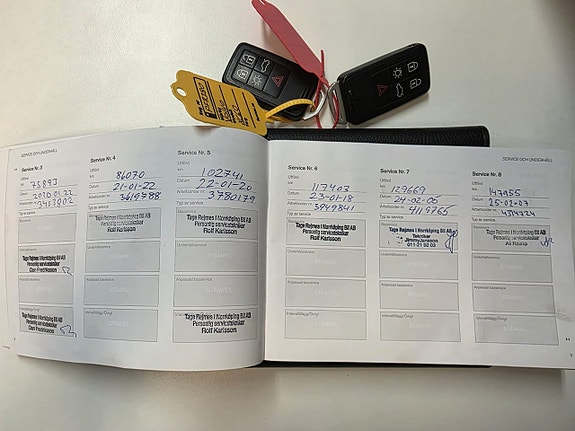 SERVICE OCH UNDERHÅLL
Service Nr. 3
Utförd
km 75893
Datum 2020 01 22
Arbetsorder nr.
Typ av service
Tage Rejmes i Norrköping Bil AB
Personlig servicetekniker
Tage Rejmes i Norrköping Bil AB
Personlig servicetekniker
Service Nr. 4
Utförd
km 86070
Datum 21-01-22
Arbetsorder nr. 3619788
Typ av service
Tage Rejmes i Norrköping Bil AB
Personlig servicetekniker
Rolf Karlsson
STÄMPEL
Service Nr. 5
Utförd
km 102741
Datum 22-01-20
Arbetsorder nr. 3780179
Typ av service
Tage Rejmes i Norrköping Bil AB
Personlig servicetekniker
Rolf Karlsson
Tage Rejmes i Norrköping Bil AB
Personlig servicetekniker
Rolf Karlsson
SERVICE OCH UNDERHÅLL
Service Nr. 6
Utförd
km 117403
Datum 23-01-18
Arbetsorder nr. 3949841
Typ av service
Tage Rejmes i Norrköping Bil AB
Personlig servicetekniker
Rolf Karlsson
Anpassad basservice
Intervalltillägg/Övrigt
Service Nr. 7
Utförd
km 129669
Datum 24-02-06
Arbetsorder nr. 4119765
Typ av service
Tage Rejmes i Norrköping Bil AB
Tekniker
Jimmy Jonsson
011-21 92 03
Anpassad basservice
Intervalltillägg/Övrigt
Service Nr. 8
Utförd
km 147955
Datum 25-02-07
Arbetsorder nr. 4314724
Typ av service
Tage Rejmes i Norrköping Bil AB
Personlig servicetekniker
Anpassad basservice
Intervalltillägg/Övrigt